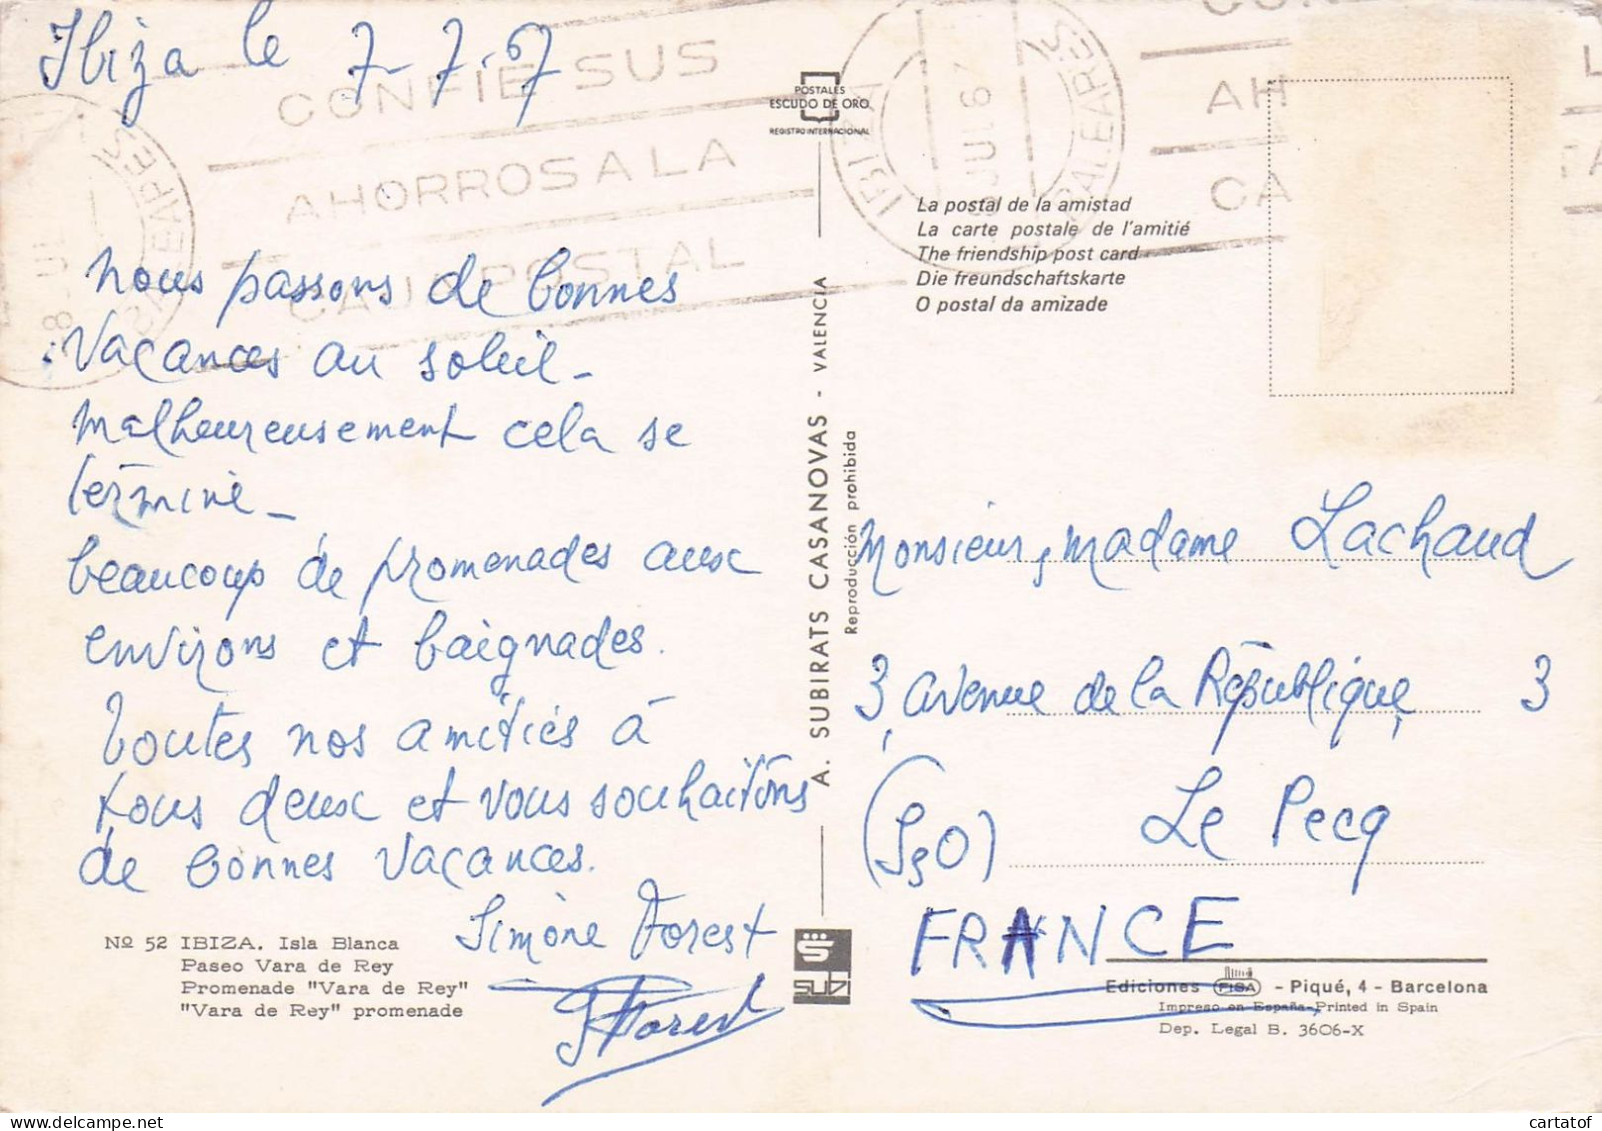 Ibiza le 7-7-67
CONFIE SUS
AHORROS A LA
CAJA POSTAL
nous passons de bonnes
vacances au soleil_
malheureusement cela se
termine_
beaucoup de promenades aux
environs et baignades.
toutes nos amitiés à
tous deux et vous souhaitons
de bonnes vacances.
Simone Forest
Forest
Nº 52 IBIZA. Isla Blanca
Paseo Vara de Rey
Promenade "Vara de Rey"
"Vara de Rey" promenade
POSTALES
ESCUDO DE ORO
REGISTRO INTERNACIONAL
A. SUBIRATS CASANOVAS - VALENCIA
Reproducción prohibida
subi
IBIZA
JUL 67
BALEARES
La postal de la amistad
La carte postale de l'amitié
The friendship post card
Die freundschaftskarte
O postal da amizade
Monsieur, madame Lachaud
3, avenue de la République, 3
(S&O) Le Pecq
FRANCE
Ediciones FISA - Piqué, 4 - Barcelona
Impreso en España-Printed in Spain
Dep. Legal B. 3606-X
cartatof